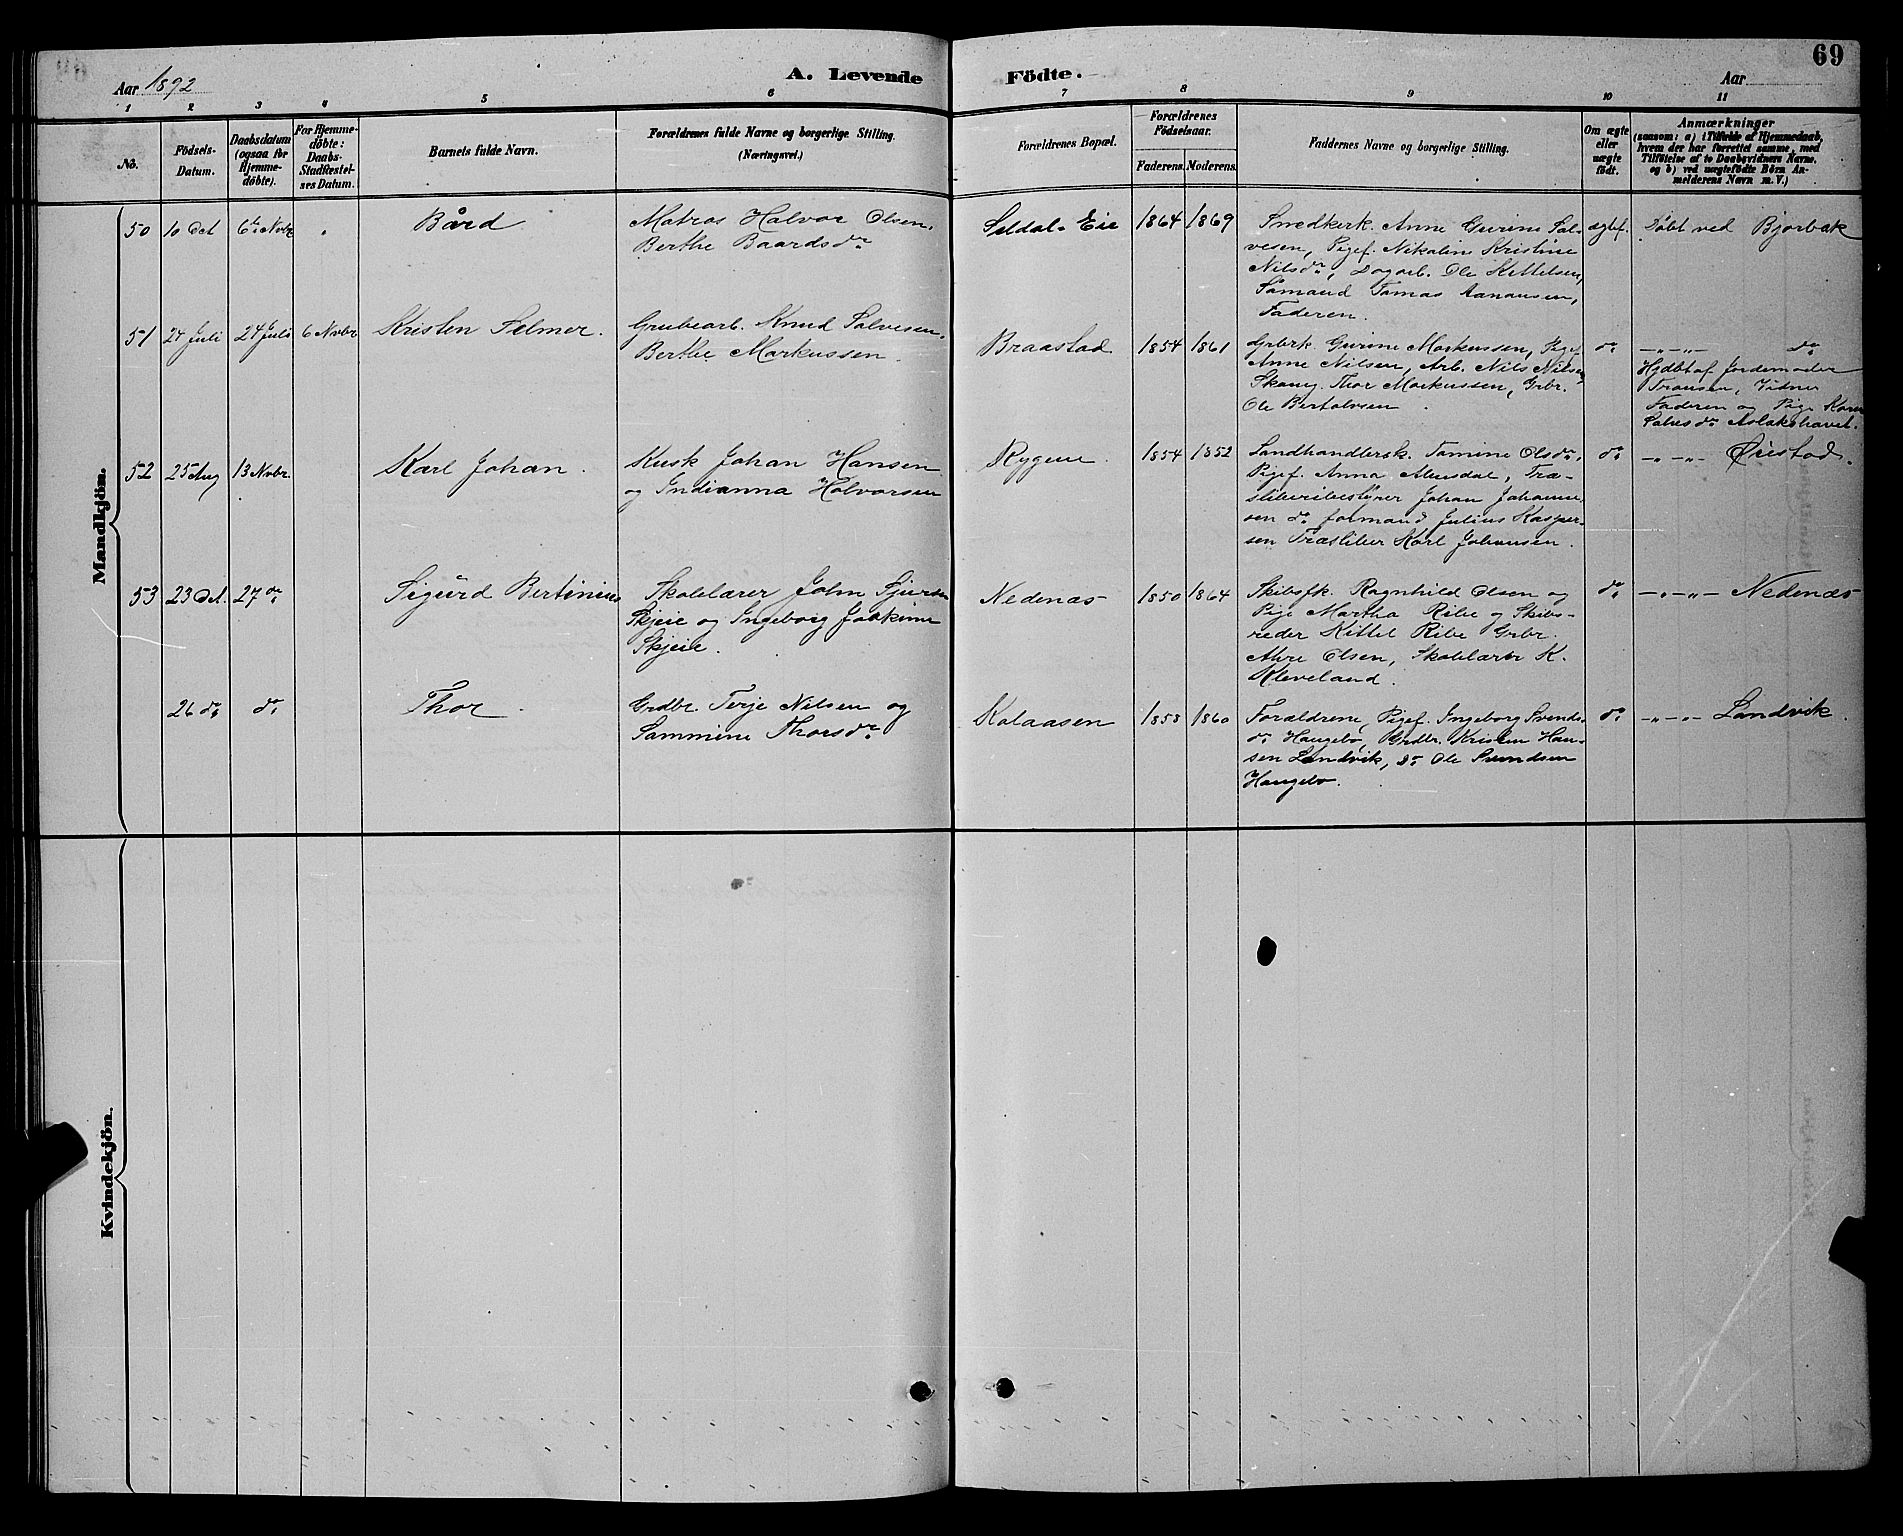 69
Aar 1892 A. Levende Födte. Aar
1 2 3 4 5 6 7 8 9 10 11
No.
Födsels-Datum.
Daabsdatum (ogsaa for Hjemme-döbte).
For Hjemme-döbte: Daabs-Stadfæstel-ses Datum.
Barnets fulde Navn.
Forældrenes fulde Navne og borgerlige Stilling. (Næringsvei.)
Forældrenes Bopæl.
Forældrenes Födselsaar.
Faderens. Moderens.
Faddernes Navne og borgerlige Stilling.
Om ægte eller uægte födt.
Anmærkninger
(saasom: a) i Tilfælde af Hjemmedaab,
hvem der har forrettet samme, med
Tilföielse af to Daabsvidners Navne,
og b) ved uægtefödte Börn An-
melderens Navn m. V.)
Mandkjön.
50 10 Oct 6te Novbr Bård
Matros Halvor Olsen,
Berthe Baardsdr
Seldal-Eie 1864 1869
Smedkerk. Anne Gurine Sal-
vesen, Pigef. Nikoline Kristine
Nilsdr, Dagarb. Ole Kittelsen,
Sömand Tomas Aanonsen,
Faderen.
ægtef. Döbt ved Bjorbæk
51 24 Juli 24 Juli 6 Nvbr Kristen Selmer.
Grubearb. Knud Salvesen,
Berthe Markussen.
Braastad 1854 1861
Grbrk. Gurine Markussen, Pigef.
Anne Nilsen, Arb. Nils Nilsen
Thor Markussen, Grbr.
Ole Bertelsen.
do
-"-"- do
Hjdbt af Jordemoder
Fransen, Vidner
Faderen og Pige Karen
52 25 Aug 13 Novbr. Karl Johan.
Kusk Johan Hansen
og Indianna Halvorsen
Rygene. 1854 1852
Landhandlersk. Tomine Olsdr.
Pigef. Anna Træ-
sliberibestyrer Johan Johanne-
sen do formand Julius Kasper-
sen Træsliber Karl Johansen.
do -"-"- Öiestad.
53 23 Oct. 27 do Sigurd Bertinius
Skolelærer John Sjursen
Skjeie og Ingeborg Joakime
Skjeie.
Nedenæs 1850 1864
Skibsfk. Ragnhild Olsen og
Pige Martha Ribe og Skibs-
reder Kittel Ribe Grbr.
Olsen, Skolelærer K.
Kleveland.
do -"-"- Nedenæs
26 do do Thor.
Grdbr. Terje Nilsen og
Sammine Thorsdr
Kalaasen 1858 1860
Forældrene, Pigef. Ingeborg Svends-
dr Haugebo, Grdbr. Kristen Han-
sen Landvik, do Ole Svendsen
Haugebo.
do -"-"- Landvik.
Kvindekjön.